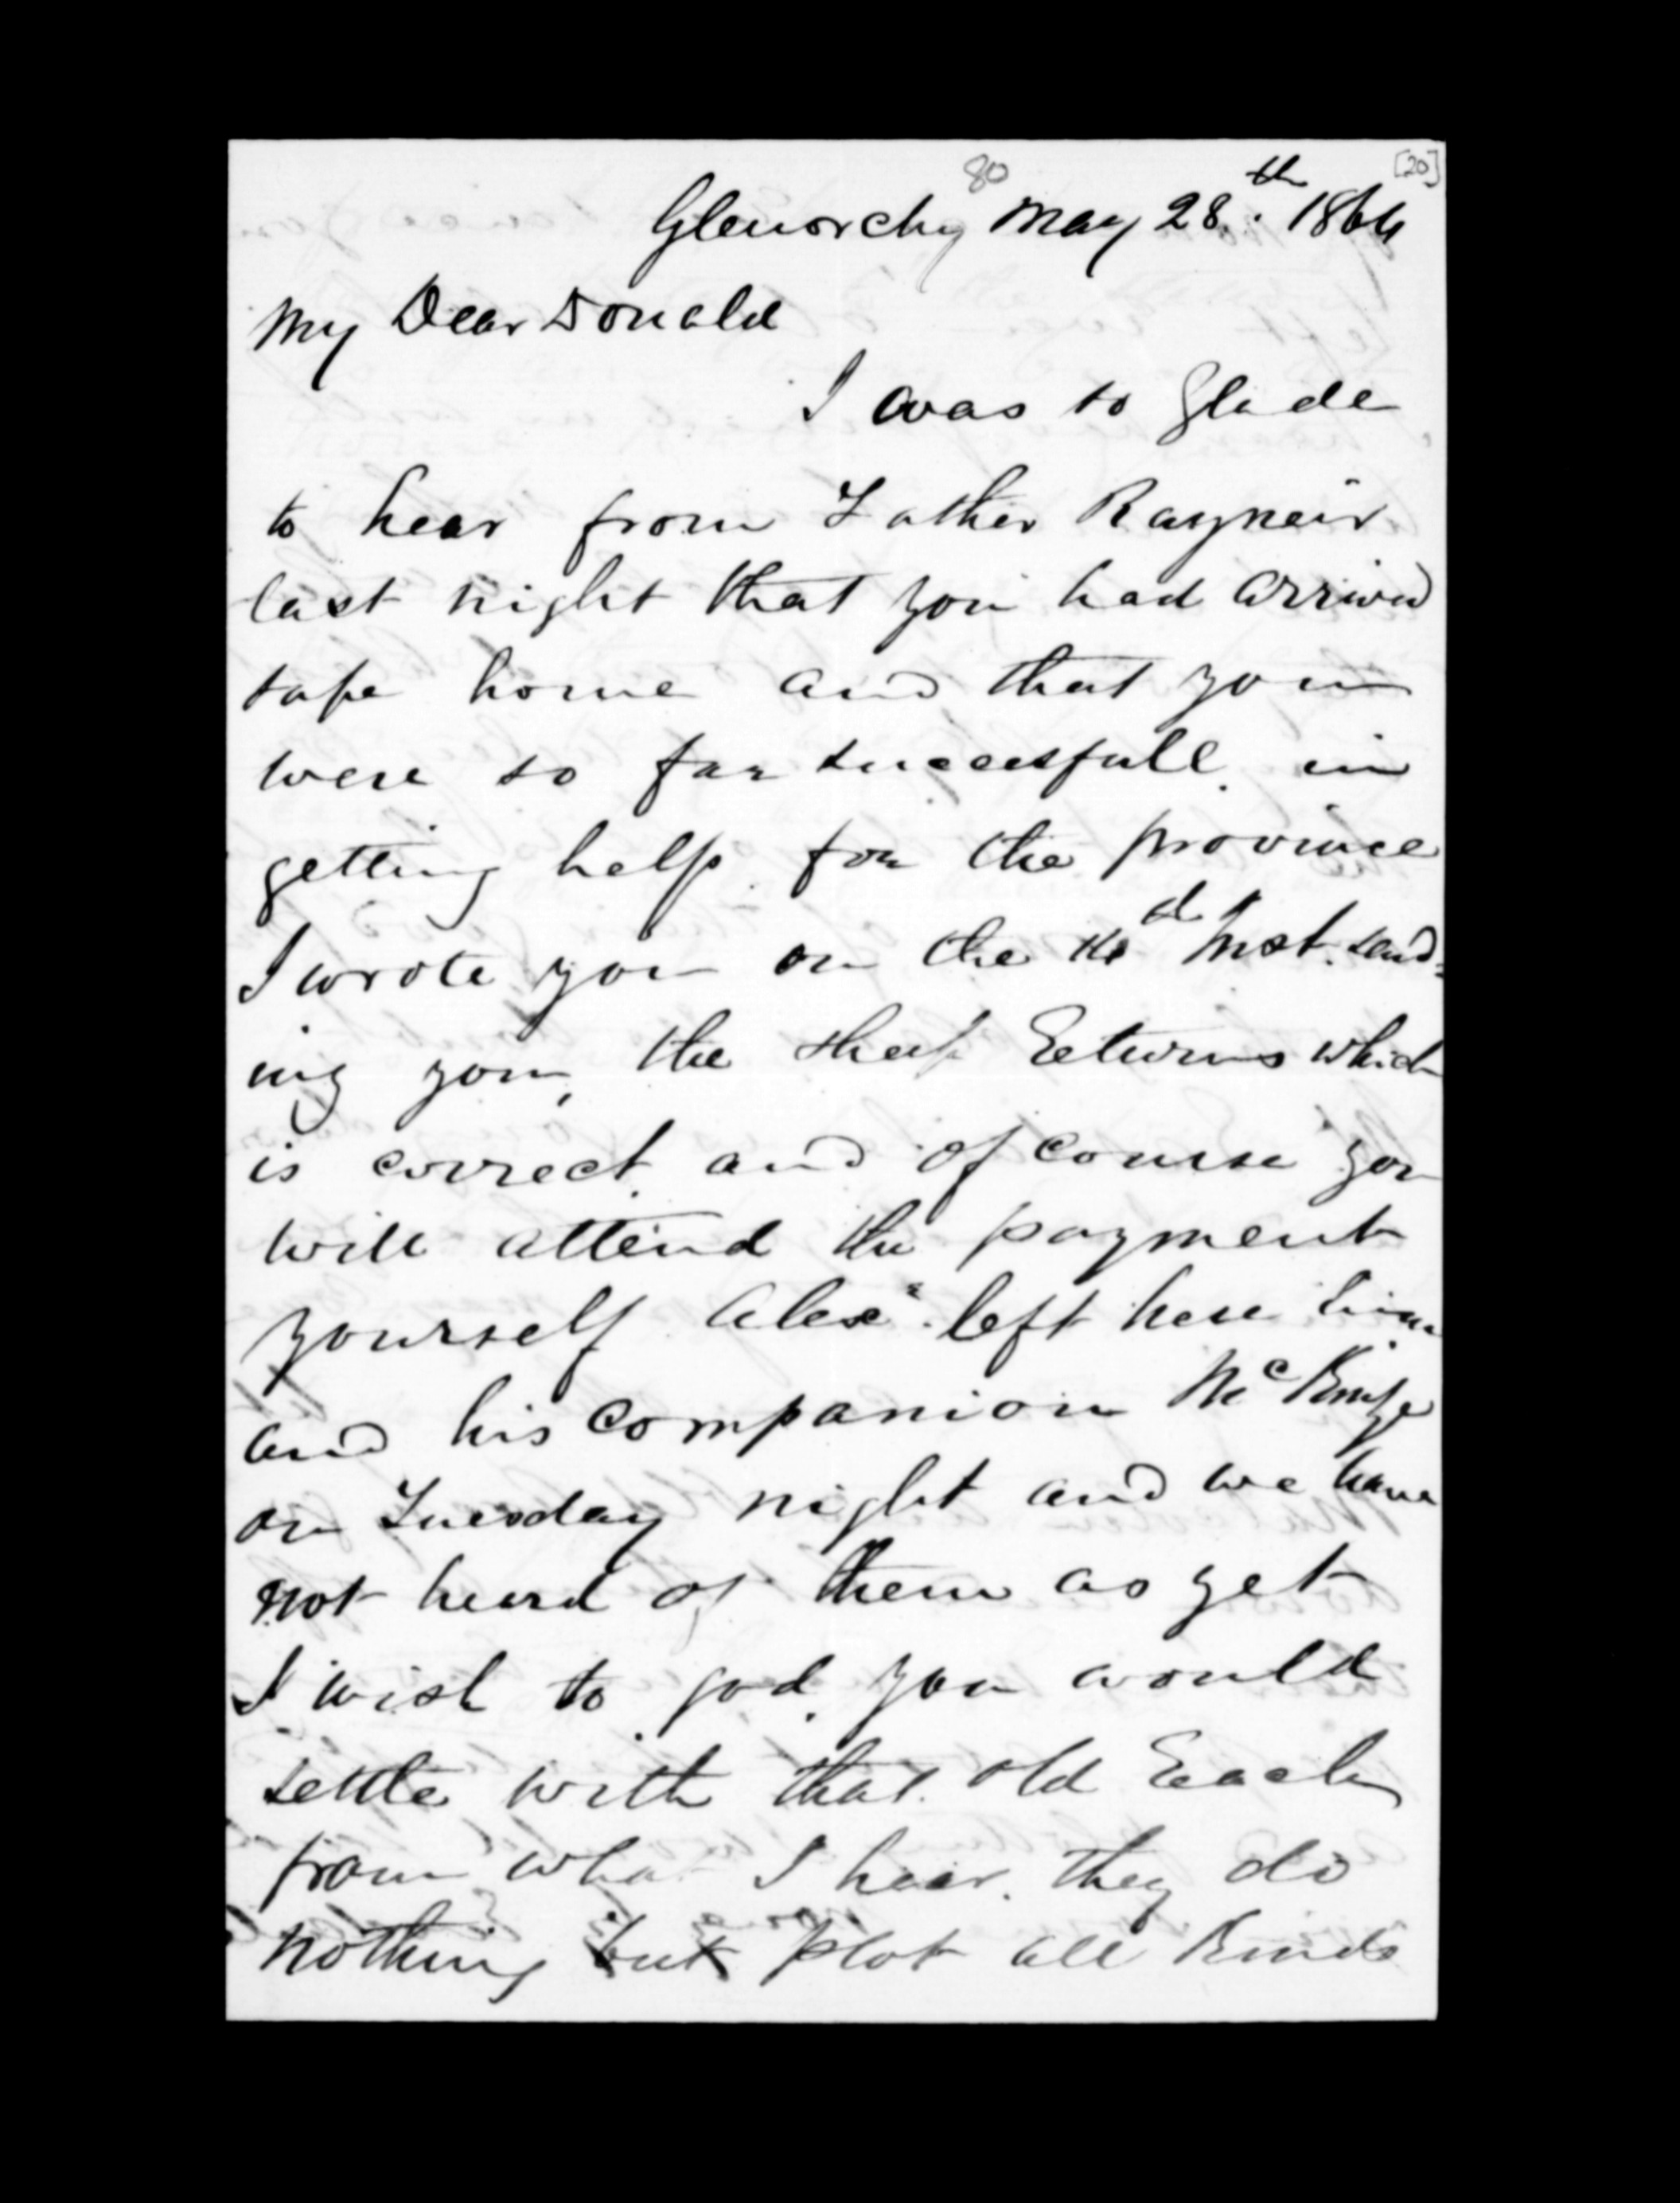 80
[20]
Glenorchy May 28th 1864
My Dear Donald
I was so Glade
to hear from Father Rayneir
last night that you had arrived
safe home and that you
were so far successfull in
getting help for the province
I wrote you on the Inst. send=
ing you, the sheep Returns which
is correct and of course you
will attend the payment
yourself Alexr left here him
and his companion Mc Kinze
on Tuesday night and we have
not heard of them as yet
I wish to god you would
settle with that old
from what I hear. they do
nothing but plot all Kinds